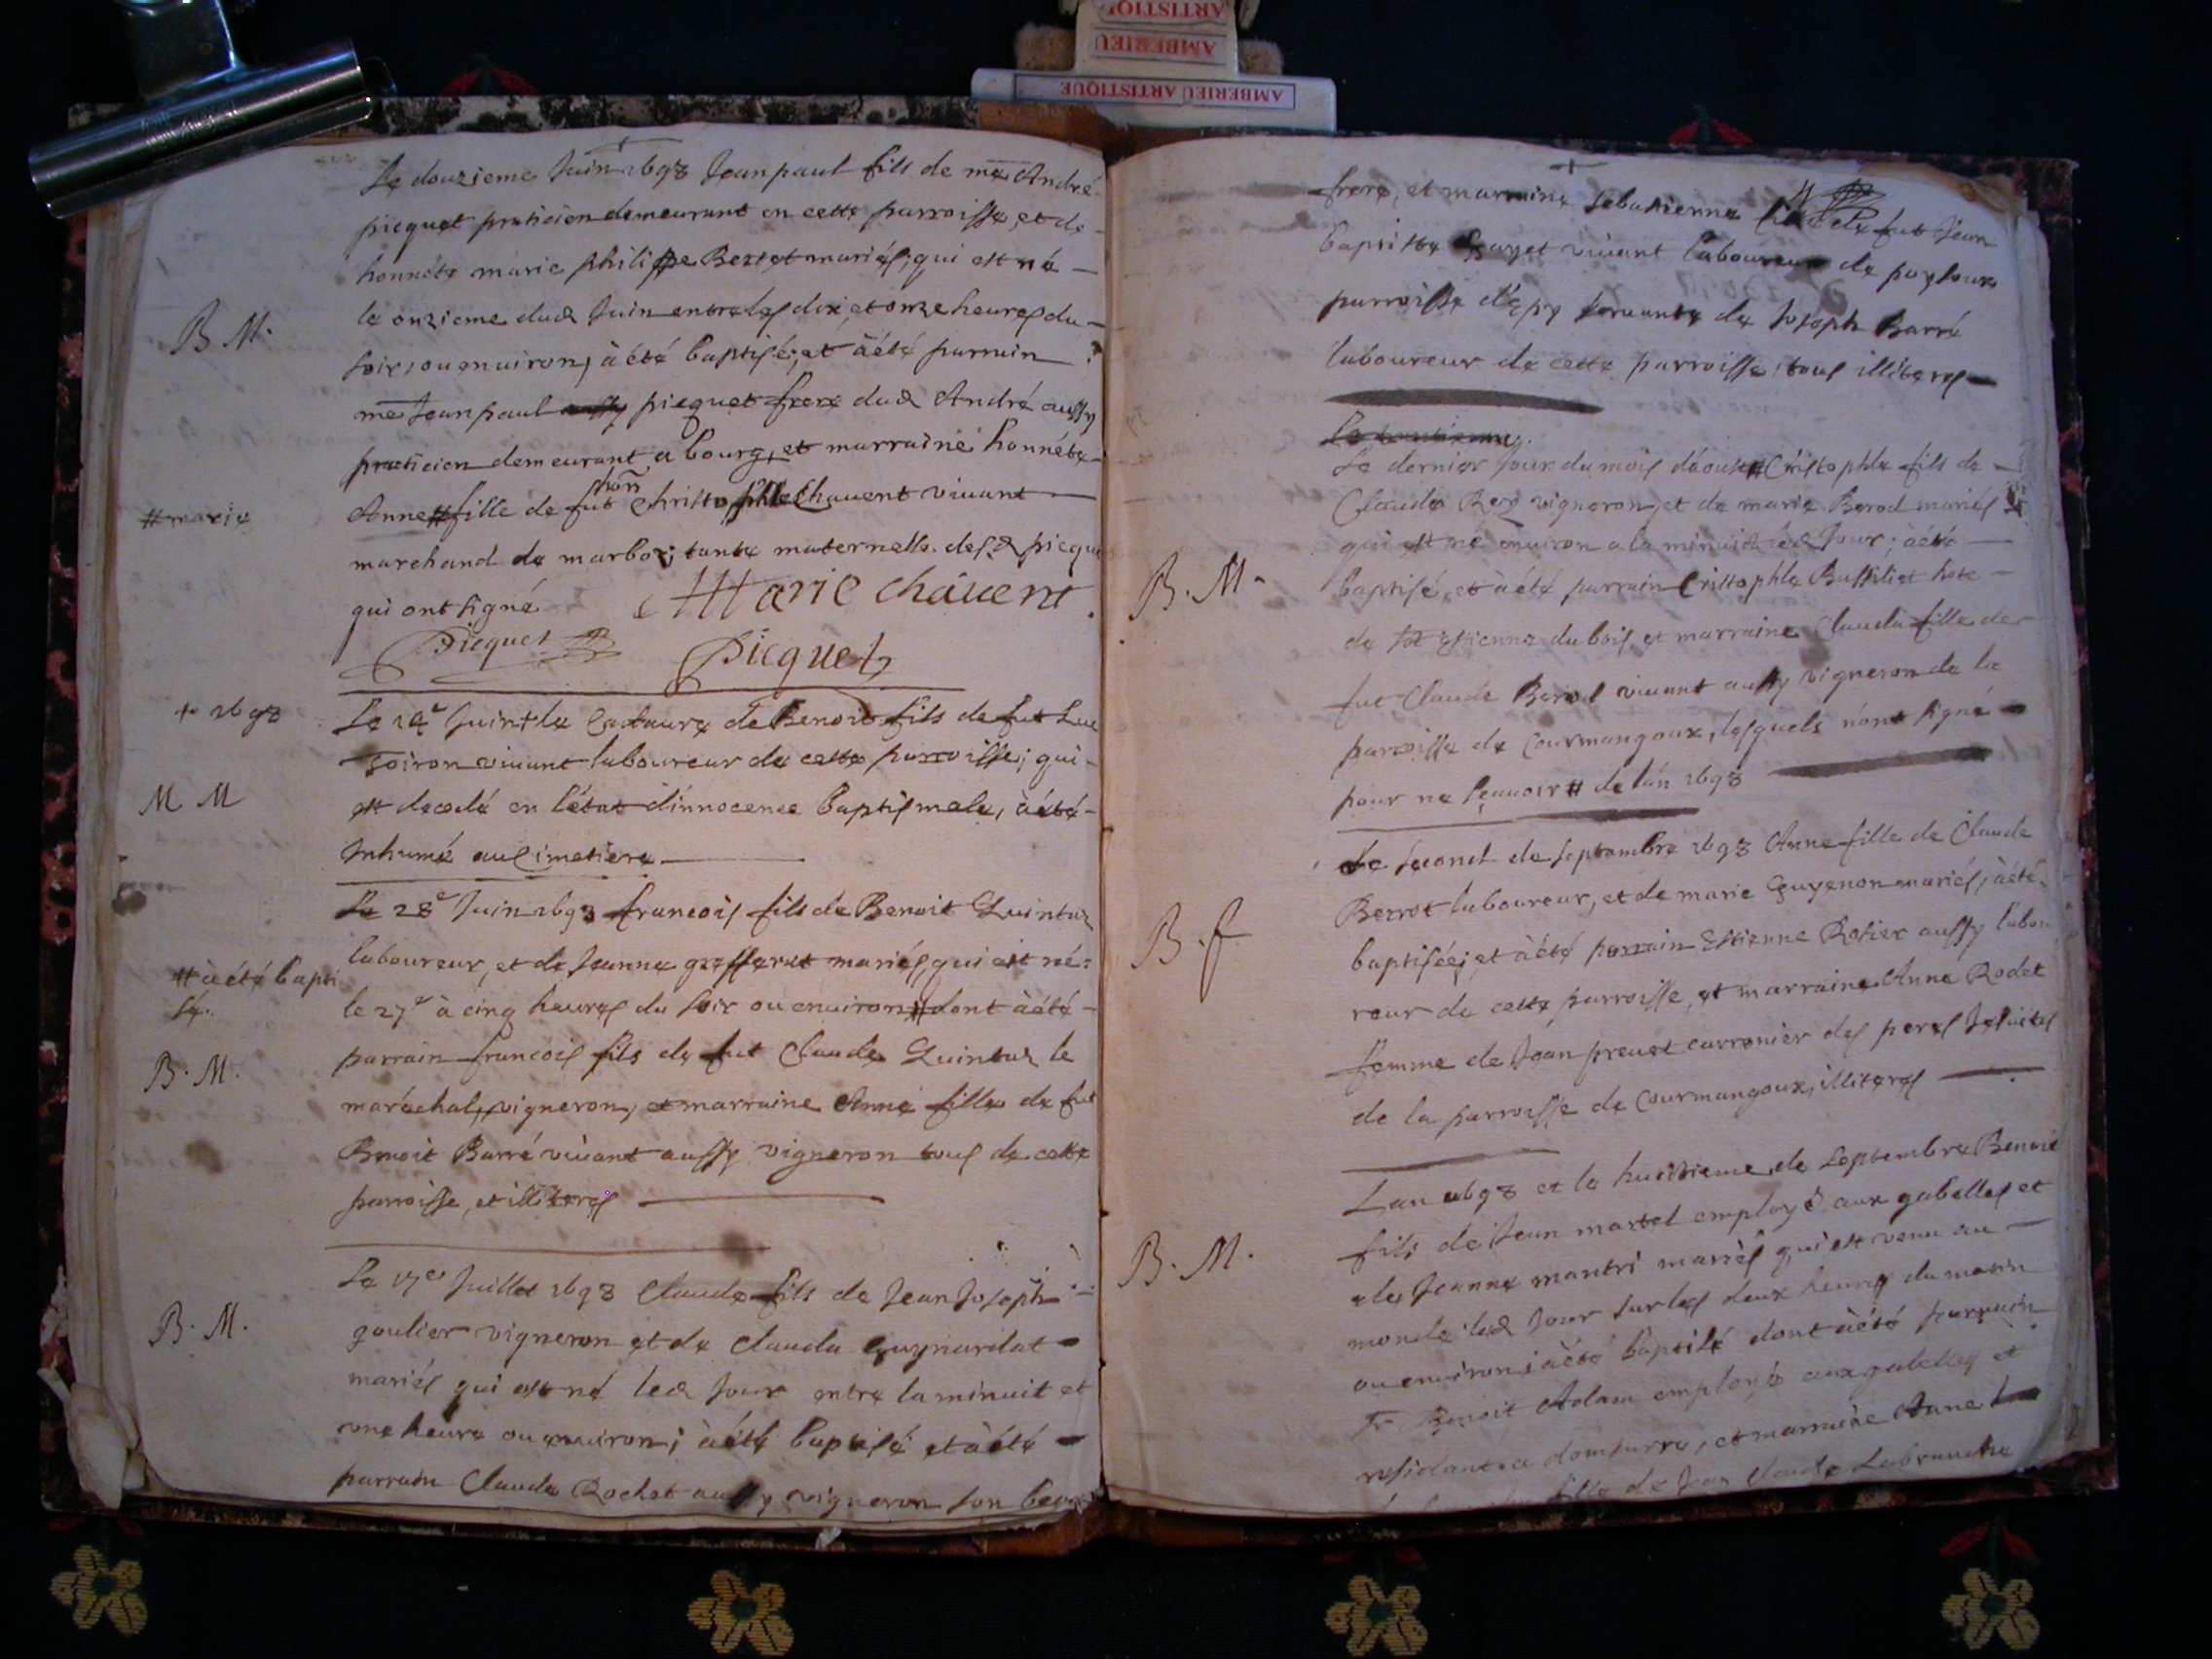 ARTISTIQ
AMBERIEU
AMBERIEU ARTISTIQUE
Le douzieme Juin 1698 Jean paul fils de me André
picquet praticien demeurant en cette parroisse, et de
honnéte marie philippe Berret mariés, qui est né
le onzieme dud Juin entre les dix, et onze heures du
B M.
soir, ou environ, à été baptisé; et à été parrain
me Jean paul picquet frere dud André aussy
praticien demeurant a bourg, et marraine honnéte
hon
Anne # fille de fut Christophle Chauent viuant
# marie
marchand de marboz; tante maternelle desd picqu
qui ont signé Marie chauent
Picquet Picquet
+ 1698
Le 24e Juin de Benoit fils de fut Luc
Soiron viuant laboureur de cette parroisse; qui
M M
est decedé en l'état d'innocence baptismale, à été
Inhumé au Cimetiere
Le 28e Juin 1698 francois fils de Benoit Quintaz
laboureur, et de Jeanne mariés, qui est né
# à été bapti
sé.
le 27e à cinq heures du soir ou environ # dont à été
B. M.
parrain francois fils de fut Claude Quintaz le
maréchal, vigneron, et marraine Anne fille de fut
Benoit Barré viuant aussy vigneron tous de cette
parroisse, et illiterés
Le 17e Juillet 1698 Claude fils de Jean Joseph
B. M.
goulier vigneron et de Clauda
mariés qui est né led Jour entre la minuit et
une heure ou environ; à été baptisé et à été
parrain Claude Rochet aussy vigneron son beau
frere, et marraine Sebastienne fille de fut Jean
baptiste viuant laboureur de
parroisse d'épy seruante de Joseph Barré
laboureur de cette parroisse tous illiterés
Le dernier Jour du mois d'aoust # Cristophle fils de
Claude Rey vigneron, et de marie Berod mariés
qui est né environ a la minuit led Jour; à été
B. M.
baptisé, et à été parrain Cristophle hote
de St Estienne du bois, et marraine Clauda fille de
fut Claude Berod viuant aussy vigneron de la
parroisse de Courmangoux, lesquels n'ont signé
pour ne sçauoir # de l'an 1698
Le second de septembre 1698 Anne fille de Claude
Berrot laboureur, et de marie Guyenon mariés, à été
B. f
baptisée; et à été parrain Estienne Rosier aussy labou
reur de cette parroisse, et marraine Anne Rodet
femme de Jean preuet carronier des peres Jesuites
de la parroisse de Courmangoux, illiterés
L'an 1698 et le huitieme de septembre Benoit
fils de Jean martel employé aux gabelles et
B. M.
de Jeanne mantri mariés qui est venu au
monde led Jour sur les deux heures du matin
ou environ; à été baptisé dont à été parrain
Sr Benoit Adam employé aux gabelles et
residant a domsurre, et marraine Anne
fille de Jean Claude Labranche